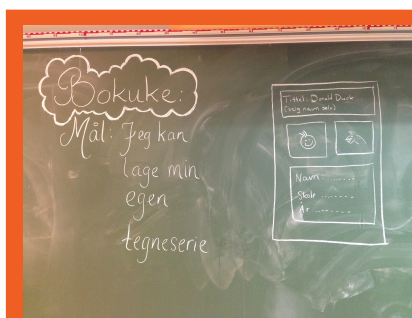 Bokuke:
Mål: Jeg kan
lage min
egen
tegneserie
Tittel: Donald Duck
(velg navn selv)
Navn ........
Skole ........
År ........